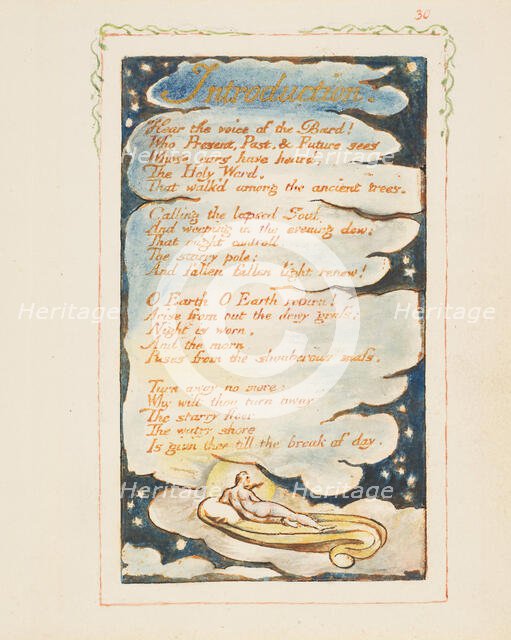 30
Introduction.
Hear the voice of the Bard!
Who Present, Past, & Future sees
Whose ears have heard,
The Holy Word,
That walk'd among the ancient trees.
Calling the lapsed Soul
And weeping in the evening dew:
That might controll,
The starry pole;
And fallen fallen light renew!
O Earth O Earth return!
Arise from out the dewy grass;
Night is worn,
And the morn
Rises from the slumberous mass.
Turn away no more:
Why wilt thou turn away
The starry floor
The watry shore
Is giv'n thee till the break of day.
Heritage
Heritage
Heritage
Heritage
Heritage
Heritage
Heritage
Heritage